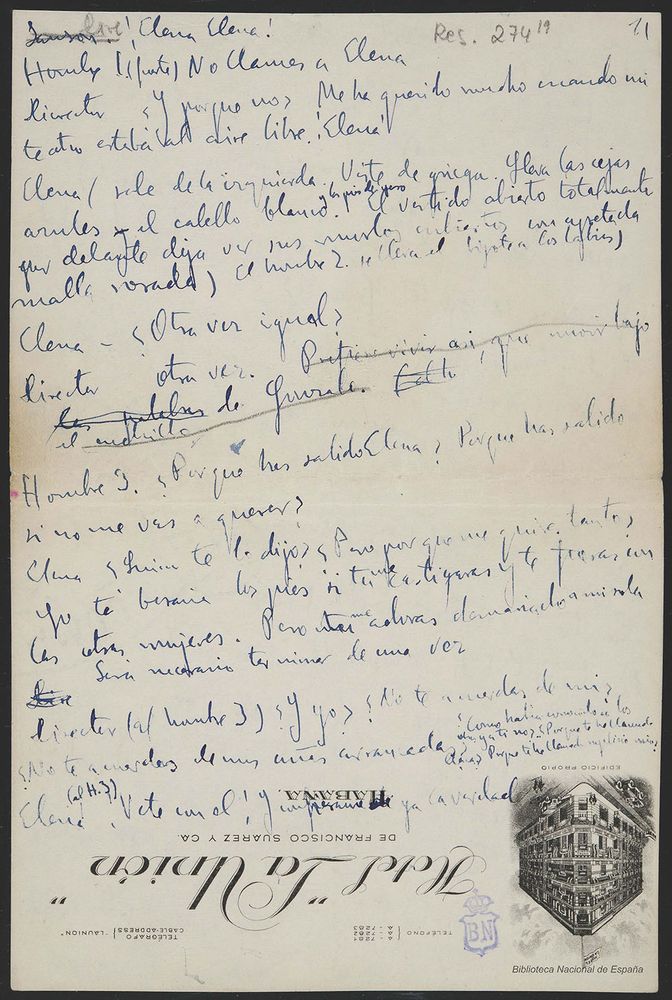 ¡Elena Elena!
Res. 274 19
11
Hombre 1 (aparte) No llames a Elena
Director ¿Y porque no? Me ha querido mucho cuando mi
teatro estaba al aire libre. ¡Elena!
Elena (sale de la izquierda. Viste de griega. Lleva las cejas
azules y el cabello blanco y los pies de yeso. El vestido abierto totalmente
por delante deja ver sus muslos cubiertos con apretada
malla rosada) El hombre 2. se lleva el a los labios)
Elena – ¿Otra vez igual?
Director otra vez. Prefiero vivir así, que morir bajo
las palabras de Gonzalo.
el
Hombre 3. ¿Porque has salido Elena? Porque has salido
si no me vas a querer?
Elena ¿Quien te lo dijo? ¿Pero por que me quieres tanto?
Yo te besaria los pies si tu me castigaras y te fueras con
las otras mujeres. Pero tu me adoras demasiado a mi sola
Será necesario terminar de una vez
Director (al hombre 3) ¿Y yo? ¿No te acuerdas de mi?
¿No te acuerdas de mis uñas arrancadas?
¿Como habria conocido a los
otras y a ti no? ¿Porque te he llamado
Elena? Porque te he llamado suplicio mio?
Elena (al H. 3) ¡Vete con el! ¡Y ya la verdad
EDIFICIO PROPIO
HABANA
DE FRANCISCO SUAREZ Y CA.
Hotel "La Unión"
TELÉFONO
A - 7281
A - 7282
A - 7283
TELÉGRAFO
CABLE-ADDRESS
"LAUNION"
BN
Biblioteca Nacional de España